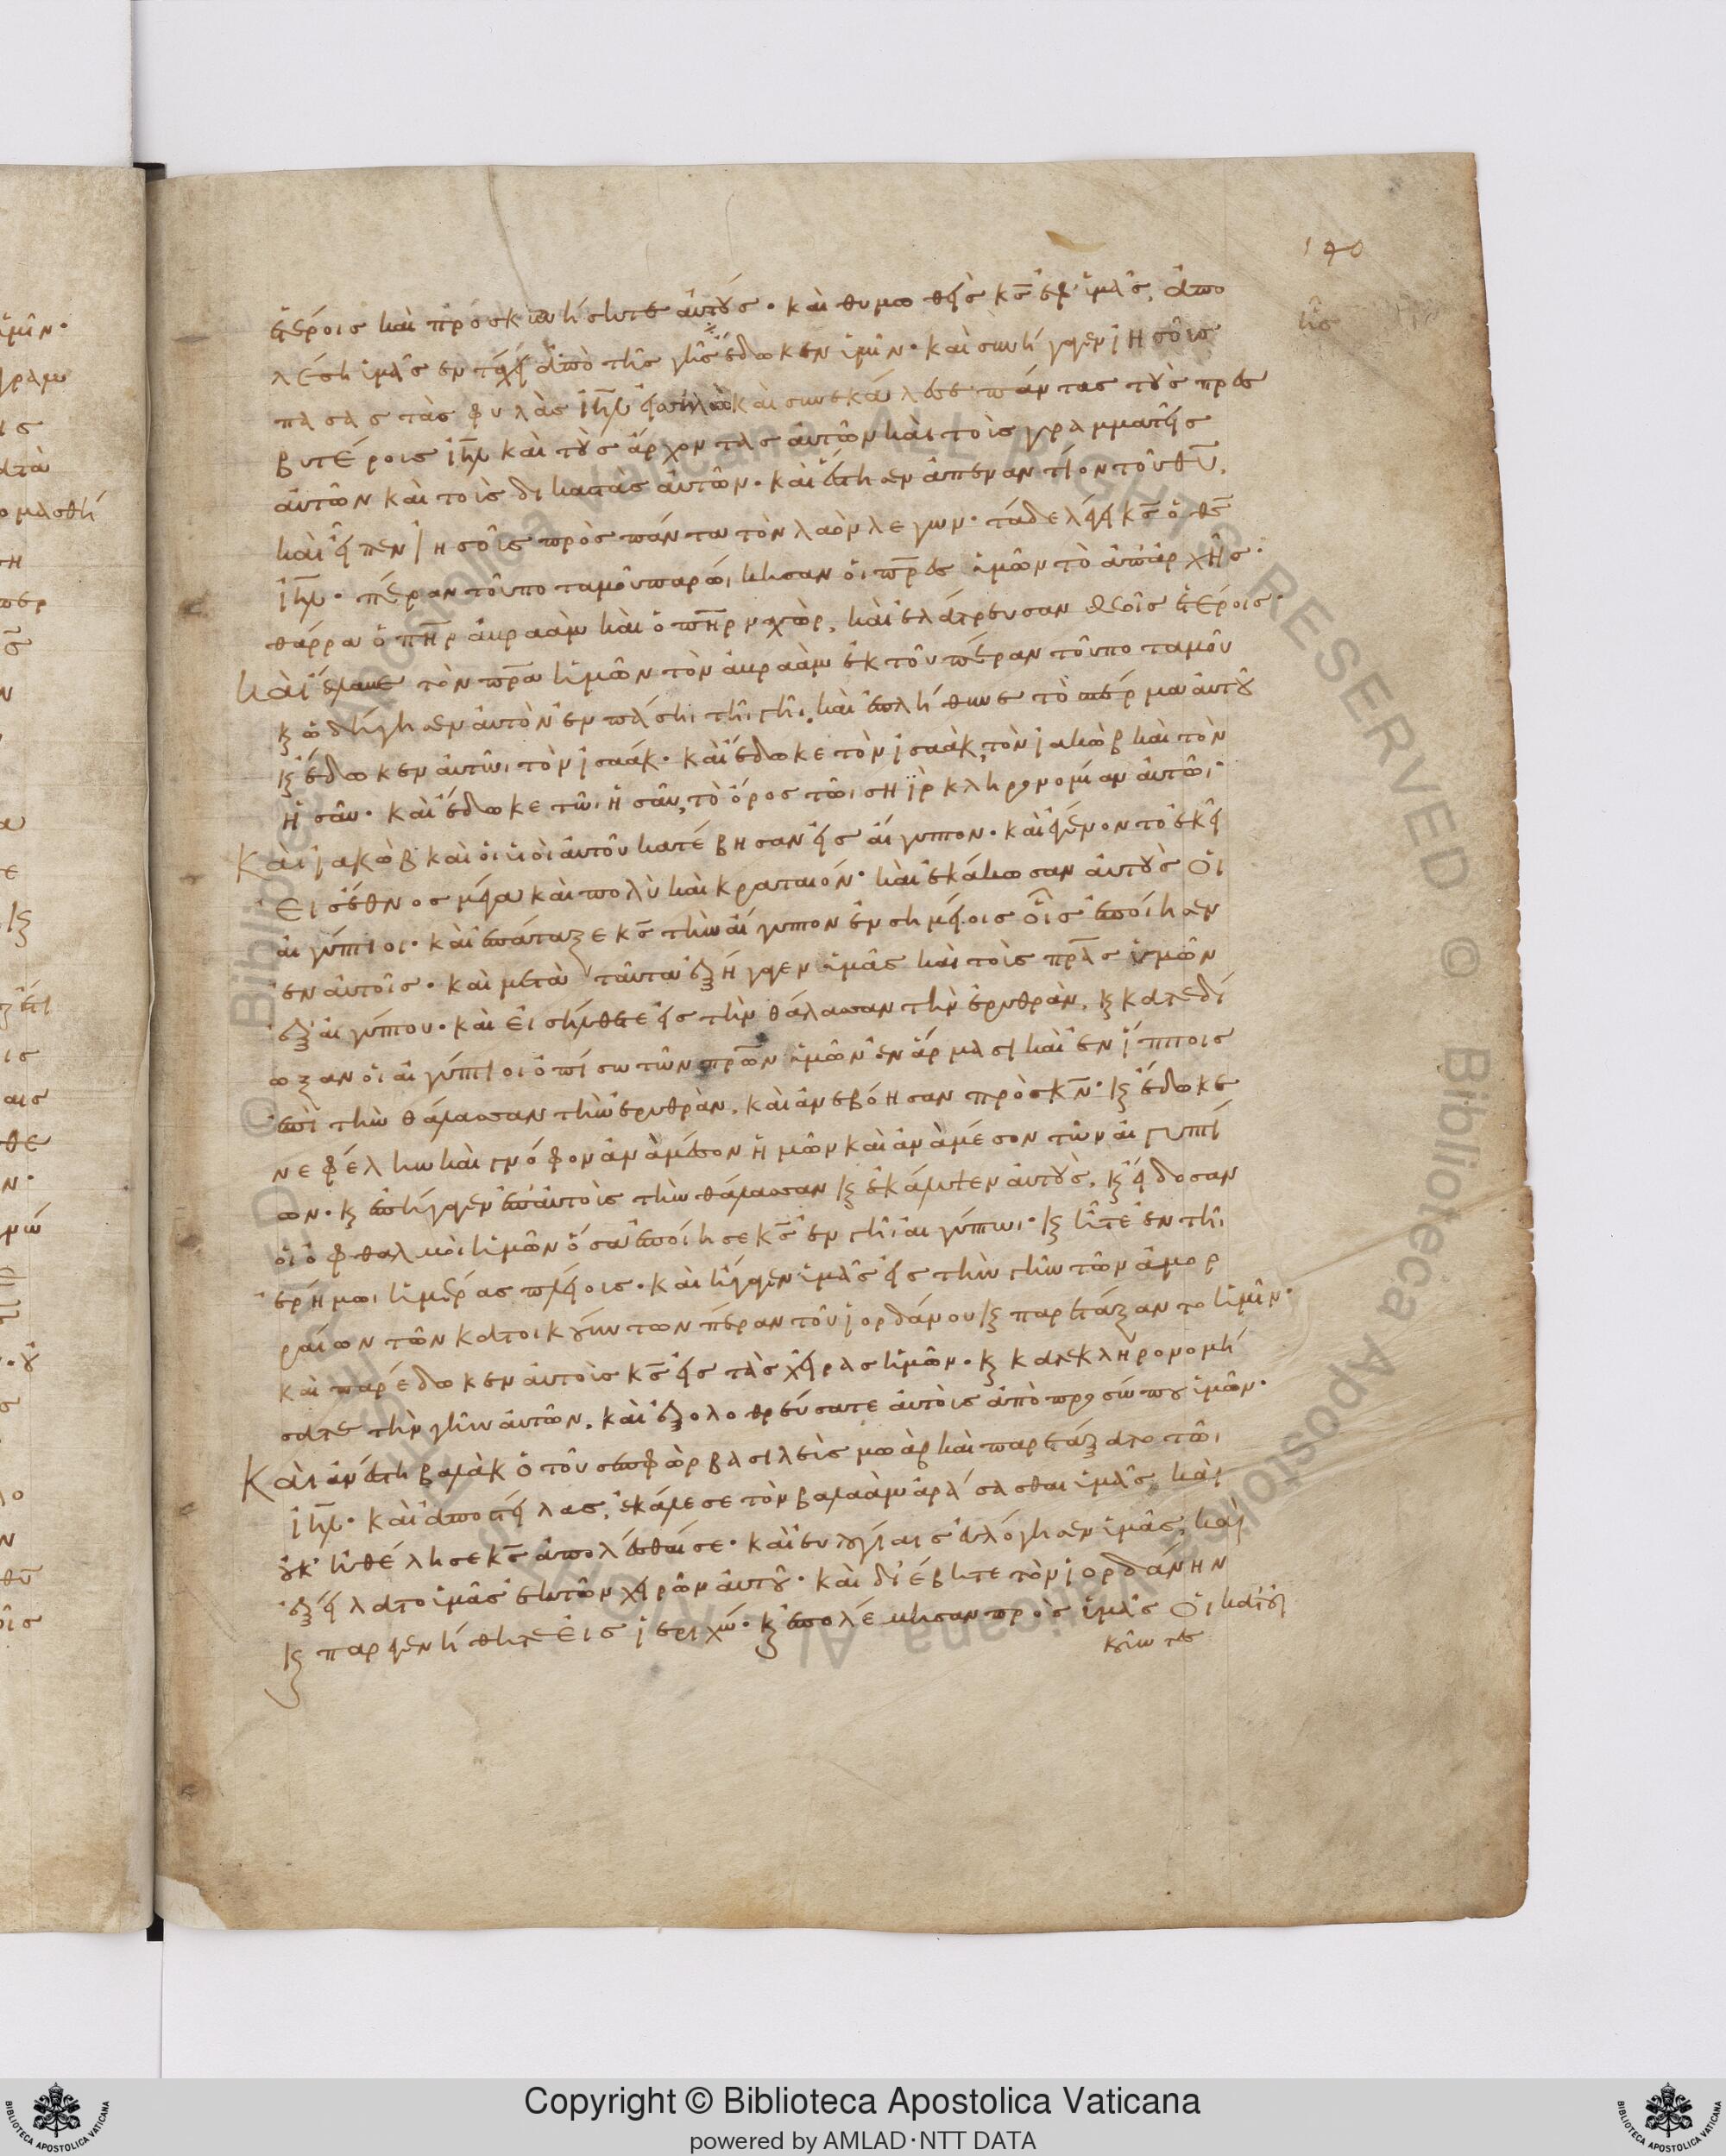 190
ἑτέροις καὶ προσκυνήσητε αὐτούς· καὶ θυμωθεὶς κς ἐφ ὑμᾶς, ἀπο
ῆς
λέσῃ ὑμᾶς ἐν τάχει ἀπὸ τῆς γῆς ἔδωκεν ὑμῖν· καὶ συνήγαγεν ἰησοῦς
πάσας τὰς φυλὰς ιηλ εἰς σηλὼ καὶ συνεκάλεσε πάντας τοὺς πρεσ
βυτέροις ιηλ καὶ τοὺς ἄρχοντας αὐτῶν καὶ τοὶς γραμματεῖς
αὐτῶν καὶ τοὶς δικαστὰς αὐτῶν· καὶ ἔστησεν ἀπεναντίον τοῦ θυ.
καὶ εἶπεν ἰησοῦς πρὸς πάντα τὸν λαὸν λεγων· τάδε λέγει κς ὁ θς
ιηλ· πέραν τοῦ ποταμοῦ παρώικησαν οἱ πρες ὑμῶν τὸ ἀπάρχῆς·
θάρρα ὁ πηρ ἀβρααὰμ καὶ ὁ πηρ ναχὼρ, καὶ ἐλάτρευσαν θεοῖς ἑτέροις·
καὶ ἔλαβε τὸν πρα ἡμῶν τὸν ἀβραὰμ ἐκ τοῦ πέραν τοῦ ποταμοῦ
καὶ ὡδήγησεν αὐτὸν ἐν πάσῃ τῆι γῆι, καὶ ἐπλήθυνε τὸ σπέρμα αὐτοῦ
καὶ ἔδωκεν αὐτῶι τὸν ἰσαάκ· καὶ ἔδωκε τὸν ἰσαὰκ, τὸν ἰακὼβ καὶ τὸν
ἠσαῦ· καὶ ἔδωκε τῶι ἠσαῦ, τὸ ὄρος τῶι σηϊρ κληρονομίαν αὐτῶι·
Καὶ ἰακὼβ καὶ οἱ υἱοὶ αὐτοῦ κατέβησαν εἰς αἴγυπτον· καὶ ἐγένοντο ἐκεῖ
εἰς ἔθνος μέγα καὶ πολὺ καὶ κραταιόν· καὶ ἐκάκωσαν αὐτοὺς οἱ
αἰγύπτιοι· καὶ ἐπάταξε κς τὴν αἴγυπτον ἐν σημείοις οἷς ἐποίησεν
ἐν αὐτοῖς· καὶ μετὰ ταῦτα ἐξήγαγεν ὑμᾶς καὶ τοὶς πρας ὑμῶν
ἐξ αἰγύπτου· καὶ εἰσήλθετε εἰς τὴν θάλασσαν τὴν ἐρυθρὰν, καὶ κατεδί
ωξαν οἱ αἰγύπτιοι ὀπίσω τῶν πρων ὑμῶν ἐν ἅρμασι καὶ ἐν ἵπποις
ἐπὶ τὴν θάλασσαν τὴν ἐρυθρὰν. καὶ ἀνεβόησαν πρὸς κν· καὶ ἔδωκε
νεφέλην καὶ γνόφον ἀνὰμέσον ἡμῶν καὶ ἀνὰμέσον τῶν αἰγυπτί
ων· καὶ ἐπήγαγεν ἐπ αὐτοὶς τὴν θάλασσαν καὶ ἐκάλυψεν αὐτοὺς, καὶ εἴδοσαν
οἱ ὀφθαλμοὶ ἡμῶν ὅσα ἐποίησε κς ἐν γῆι αἰγύπτωι· καὶ ἦτε ἐν τῆι
ἐρήμωι ἡμέρας πλείοις· καὶ ἤγαγεν ὑμᾶς εἰς τὴν γῆν τῶν ἀμορ
ραίων τῶν κατοικούντων πέραν τοῦ ἰορδάνου καὶ παρετάξαντο ἡμῖν·
καὶ παρέδωκεν αὐτοὶς κς εἰς τὰς χεῖρας ἡμῶν· καὶ κατεκληρονομή
σατε τὴν γῆν αὐτῶν, καὶ ἐξολοθρεύσατε αὐτοὶς ἀπὸ προσώπου ὑμῶν·
Καὶ ἀνέστη βαλὰκ ὁ τοῦ σεπφὼρ βασιλεὶς μωὰβ καὶ παρετάξατο τῶι
ιηλ· καὶ ἀποστείλας, ἐκάλεσε τὸν βαλαὰμ ἀράσασθαι ὑμᾶς, καὶ
οὐκ ἠθέλησε κς ἀπολέσθαι σε· καὶ εὐλογίαις εὐλόγησεν ὑμᾶς, καὶ
ἐξείλατο ὑμᾶς ἐκ τῶν χειρῶν αὐτοῦ· καὶ διέβητε τὸν ἰορδάνην
καὶ παρεγενήθητε εἰς ἰεριχώ· καὶ ἐπολέμησαν πρὸς ὑμᾶς οἱ κατοι
κοῦντες
Copyright © Biblioteca Apostolica Vaticana
powered by AMLAD·NTT DATA